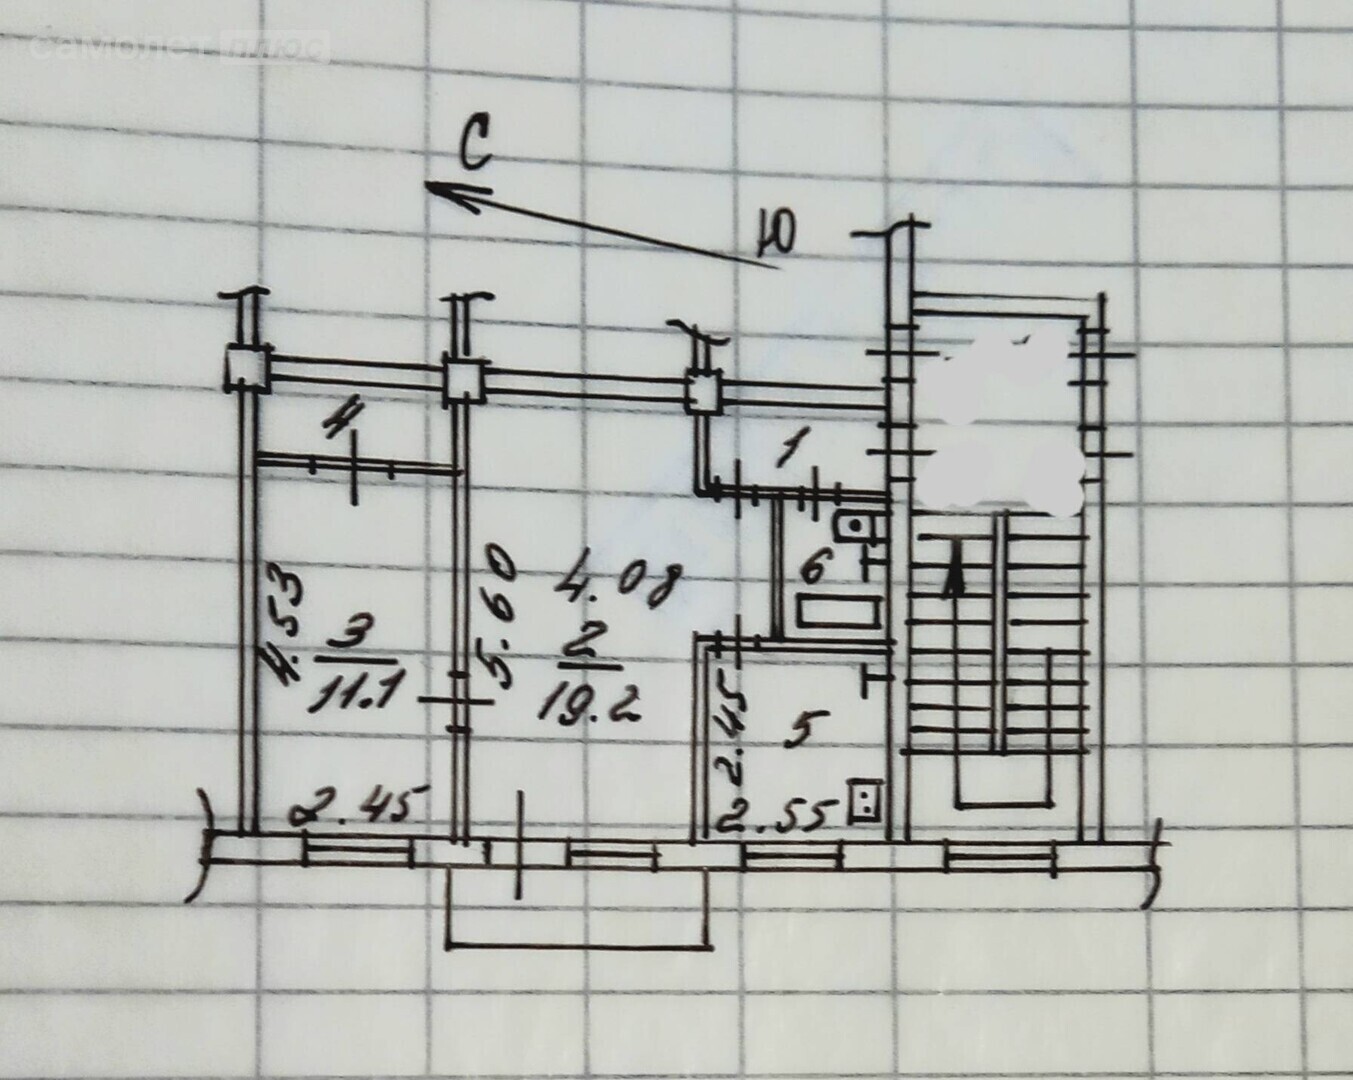 самолет плюс
С
Ю
4
1
4.53
3
11.1
5.60
4.08
2
19.2
6
2.45
5
2.45
2.55